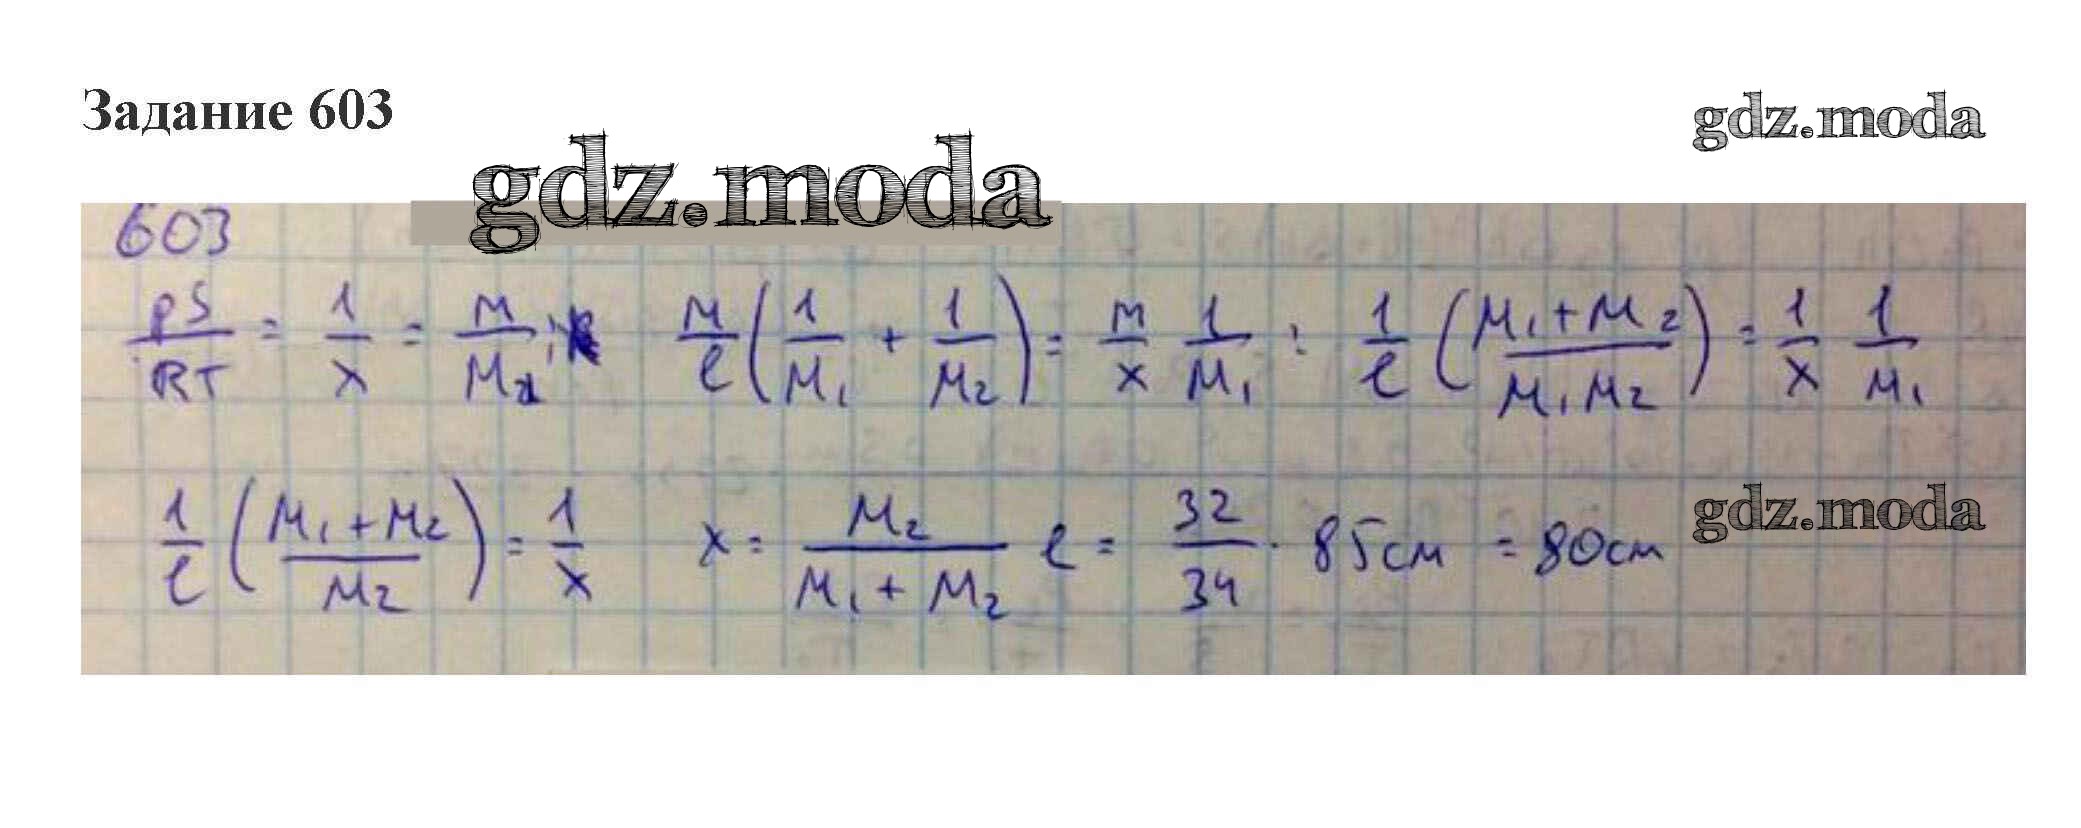 Задание 603
gdz.moda
gdz.moda
603
pS/RT = 1/x = m/M₂; m/l (1/M₁ + 1/M₂) = m/x 1/M₁ ; 1/l ((M₁+M₂)/(M₁M₂)) = 1/x 1/M₁
1/l ((M₁+M₂)/M₂) = 1/x x = M₂/(M₁+M₂) l = 32/34 · 85см = 80см
gdz.moda